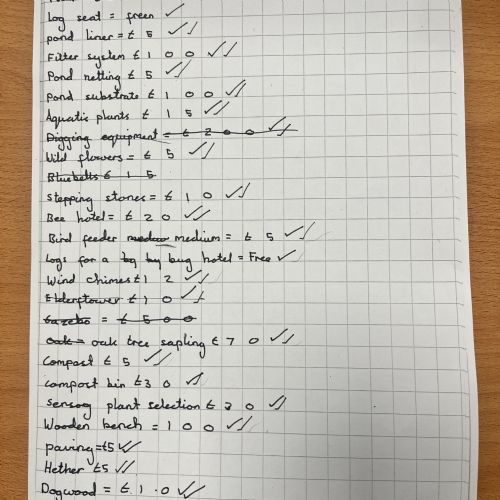 Log seat = freen ✓
pond liner = £ 5 ✓✓
Filter system £ 1 0 0 ✓✓
Pond netting £ 5 ✓✓
Pond substrate £ 1 0 0 ✓✓
Aquatic plants £ 1 5 ✓✓
Digging equipment = £ 2 0 0 ✓✓
Wild flowers = £ 5 ✓✓
Bluebells £ 1 5
Stepping stones = £ 1 0 ✓✓
Bee hotel = £ 2 0 ✓✓
Bird feeder medium = £ 5 ✓✓
Logs for a bug hotel = Free ✓
Wind chimes £1 2 ✓✓
Elderflower £ 1 0 ✓✓
Gazebo = £ 5 0 0
Oak = oak tree sapling £ 7 0 ✓✓
Compost £ 5 ✓✓
compost bin £3 0 ✓✓
sensory plant selection £ 3 0 ✓✓
Wooden bench = 1 0 0 ✓✓
paving = £5 ✓✓
Hether £5 ✓✓
Dogwood = £ 1 . 0 ✓✓